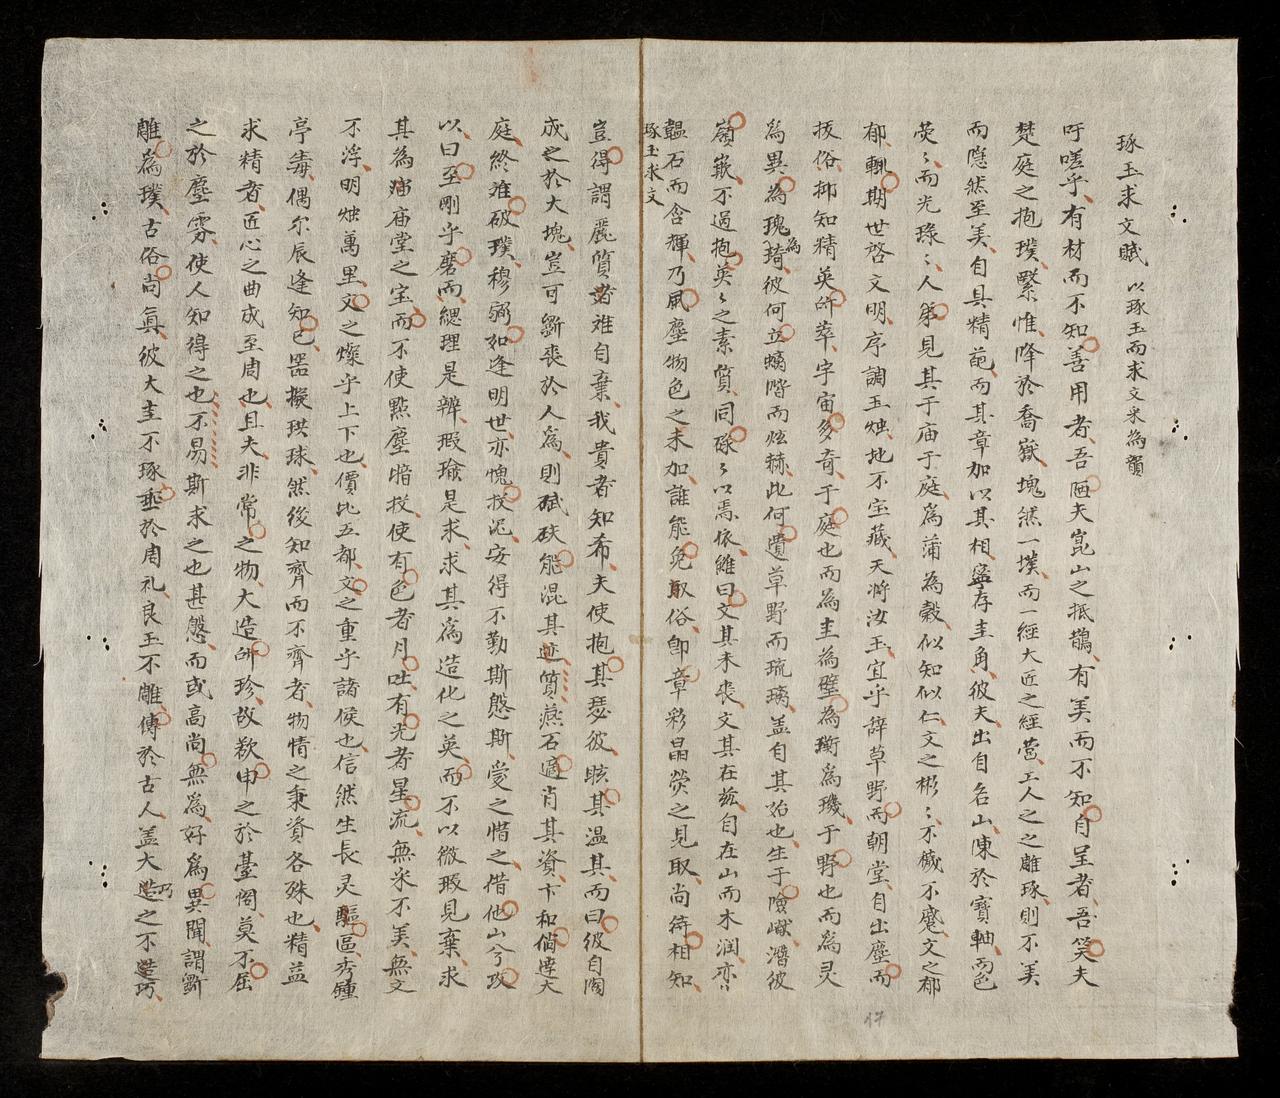 琢玉求文賦 以琢玉而求文采為韻
吁嗟乎有材而不知善用者吾陋夫崑山之抵鵲有美而不知自呈者吾笑夫
楚庭之抱璞繄惟降於喬嶽塊然一璞而一經大匠之經营工人之之雕琢則不美
而隱然至美自具精葩而其章加以其相寍存圭角彼夫出自名山陳於寶軸而色
荧〻而光琭〻人第見其于庙于庭為蒲為穀似知似仁文之彬〻不槭不蹙文之郁
郁輒期世啓文明序調玉烛地不宝藏天將汝玉宜乎辞草野而朝堂自出塵而
拔俗抑知精英所萃宇宙多奇于庭也而為圭為璧為衡為璣于野也而為灵
為異為瑰為琦彼何立螭階而炫赫此何遺草野而琉璃盖自其始也生于險巇潛彼
巔嶔不過抱英〻之素質同碌〻以焉依雖曰文其未丧文其在兹自在山而木润亦〻
韞石而含輝乃風塵物色之未加誰能免取俗卽章彩晶荧之見取尚待相知
琢玉求文
豈得謂麗質者难自棄我貴者知希夫使抱其瑟彼眩其温其而曰彼自閟
成之於大塊豈可斲丧於人為則碔砆能混其迹質燕石適肖其資卞和倘違大
庭終难破璞穆弼如逢明世亦愧投泥安得不勤斯慇斯愛之惜之借他山兮攻
以曰至剛乎磨而緦理是辨瑕瑜是求求其為造化之英而不以微瑕見棄求
其為庙堂之宝而不使點塵暗投使有色者月吐有光者星流無米不美無文
不浮明烛萬里文之燦乎上下也價比五都文之重乎諸侯也信然生長灵區秀鍾
亭毒偶尔辰逢知已噐擬珙球然後知齊而不齊者物情之秉資各殊也精益
求精者匠心之曲成至周也且夫非常之物大造所珍故欲申之於臺阁莫不屈
之於塵雰使人知得之也不易斯求之也甚慇而或高尚無為好為異聞謂斲
雕為璞古俗尚真彼大圭不琢垂於周礼良玉不雕傳於古人盖大造之不造巧